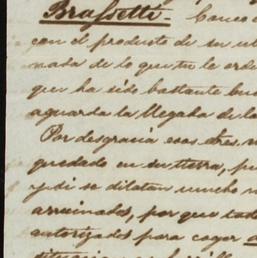 Brassetti. Conoce
con el producto de su ul
nada de lo que tu le orde
que ha sido bastante bue
aguarda la llegada de la
Por desgracia esos tres, n
quedado en su tierra, pu
y si se dilatan mucho n
arruinados, por que tod
autorizados para coger